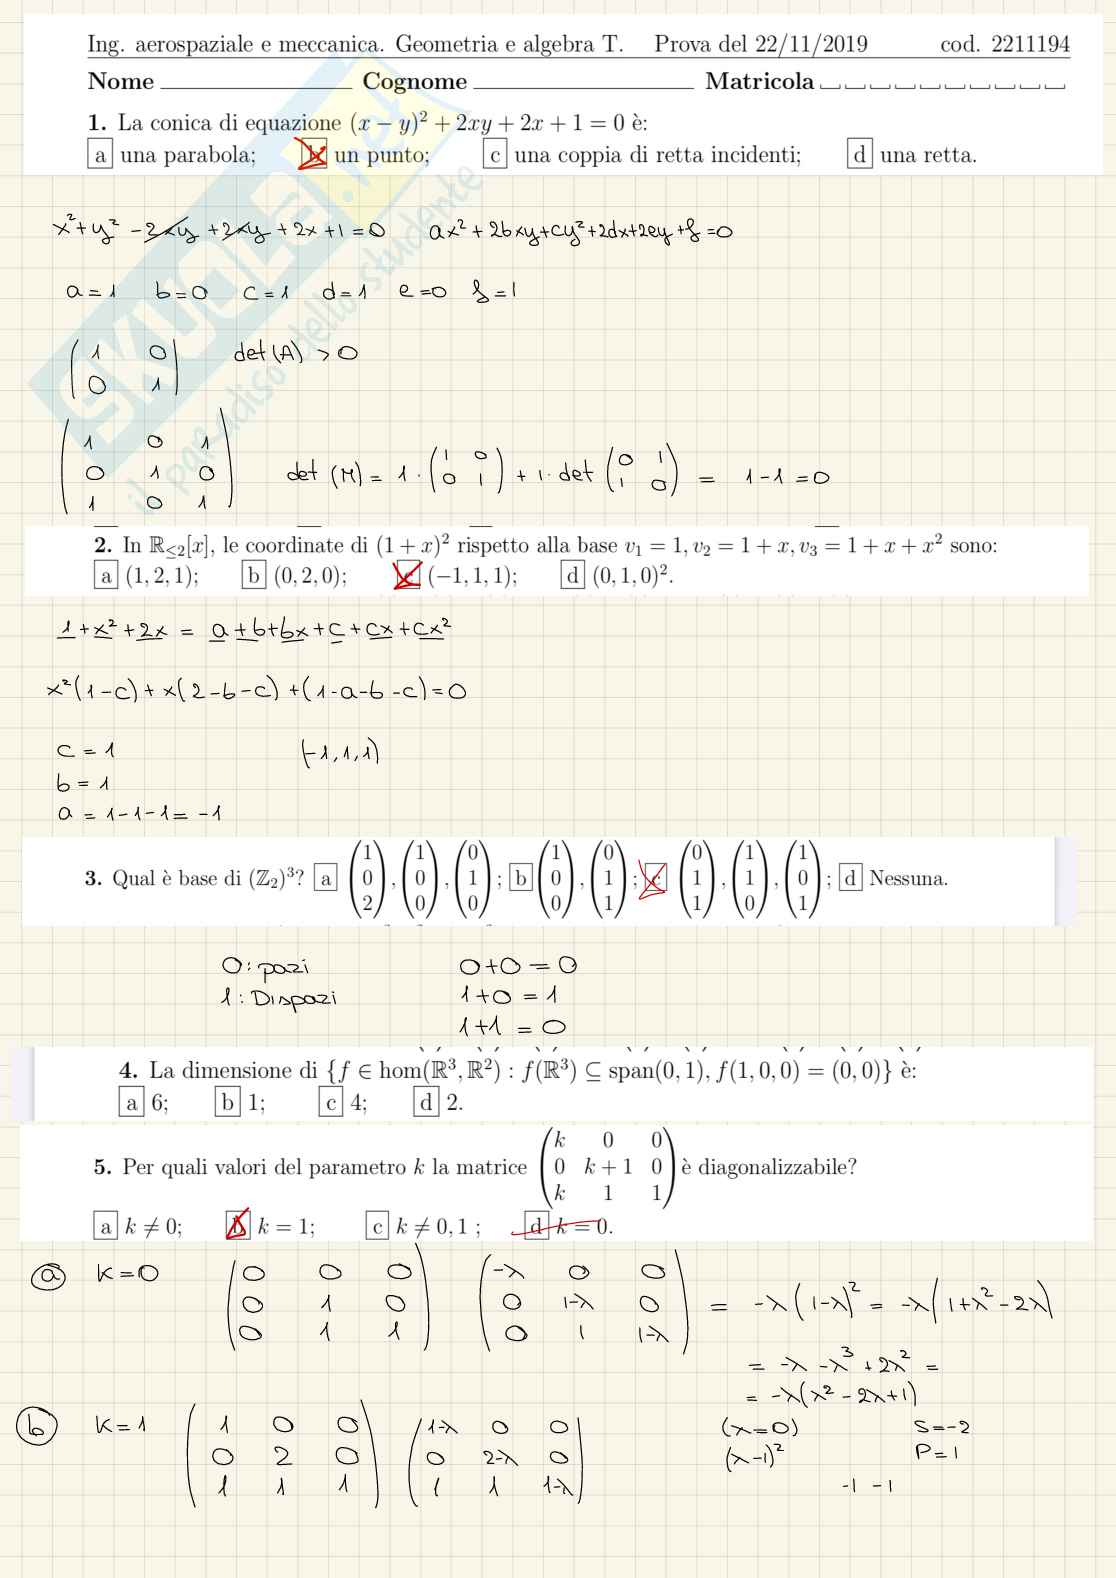 Ing. aerospaziale e meccanica. Geometria e algebra T. Prova del 22/11/2019 cod. 2211194
Nome Cognome Matricola
1. La conica di equazione (x − y)² + 2xy + 2x + 1 = 0 è:
a una parabola; b un punto; c una coppia di retta incidenti; d una retta.
x²+y² -2xy +2xy +2x +1=0 ax²+2bxy+cy²+2dx+2ey+f=0
a=1 b=0 c=1 d=1 e=0 f=1
(1 0
0 1) det(A) >0
(1 0 1
0 1 0
1 0 1) det (M) = 1·(1 0
0 1) + 1·det (0 1
1 0) = 1-1=0
SKUOLA.net
il paradiso dello studente
2. In ℝ≤2[x], le coordinate di (1 + x)² rispetto alla base v₁ = 1, v₂ = 1 + x, v₃ = 1 + x + x² sono:
a (1, 2, 1); b (0, 2, 0); c (−1, 1, 1); d (0, 1, 0)².
1+x²+2x = a+b+bx+c+cx+cx²
x²(1-c)+x(2-b-c)+(1-a-b-c)=0
c=1 (-1,1,1)
b=1
a = 1-1-1=-1
3. Qual è base di (ℤ₂)³? a (1 0 2), (1 0 0), (0 1 0); b (1 0 0), (0 1 1); c (0 1 1), (1 1 0), (1 0 1); d Nessuna.
0: pazi 0+0=0
1: Dispazi 1+0=1
1+1=0
4. La dimensione di {f ∈ hom(ℝ³, ℝ²) : f(ℝ³) ⊆ span(0, 1), f(1, 0, 0) = (0, 0)} è:
a 6; b 1; c 4; d 2.
5. Per quali valori del parametro k la matrice (k 0 0
0 k + 1 0
k 1 1) è diagonalizzabile?
a k ≠ 0; b k = 1; c k ≠ 0, 1 ; d k = 0.
a k=0 (0 0 0
0 1 0
0 1 1) (-λ 0 0
0 1-λ 0
0 1 1-λ) = -λ(1-λ)² = -λ(1+λ²-2λ)
= -λ-λ³+2λ² =
= -λ(λ²-2λ+1)
b k=1 (1 0 0
0 2 0
1 1 1) (1-λ 0 0
0 2-λ 0
1 1 1-λ)
(λ=0) S=-2
(λ-1)² P=1
-1 -1